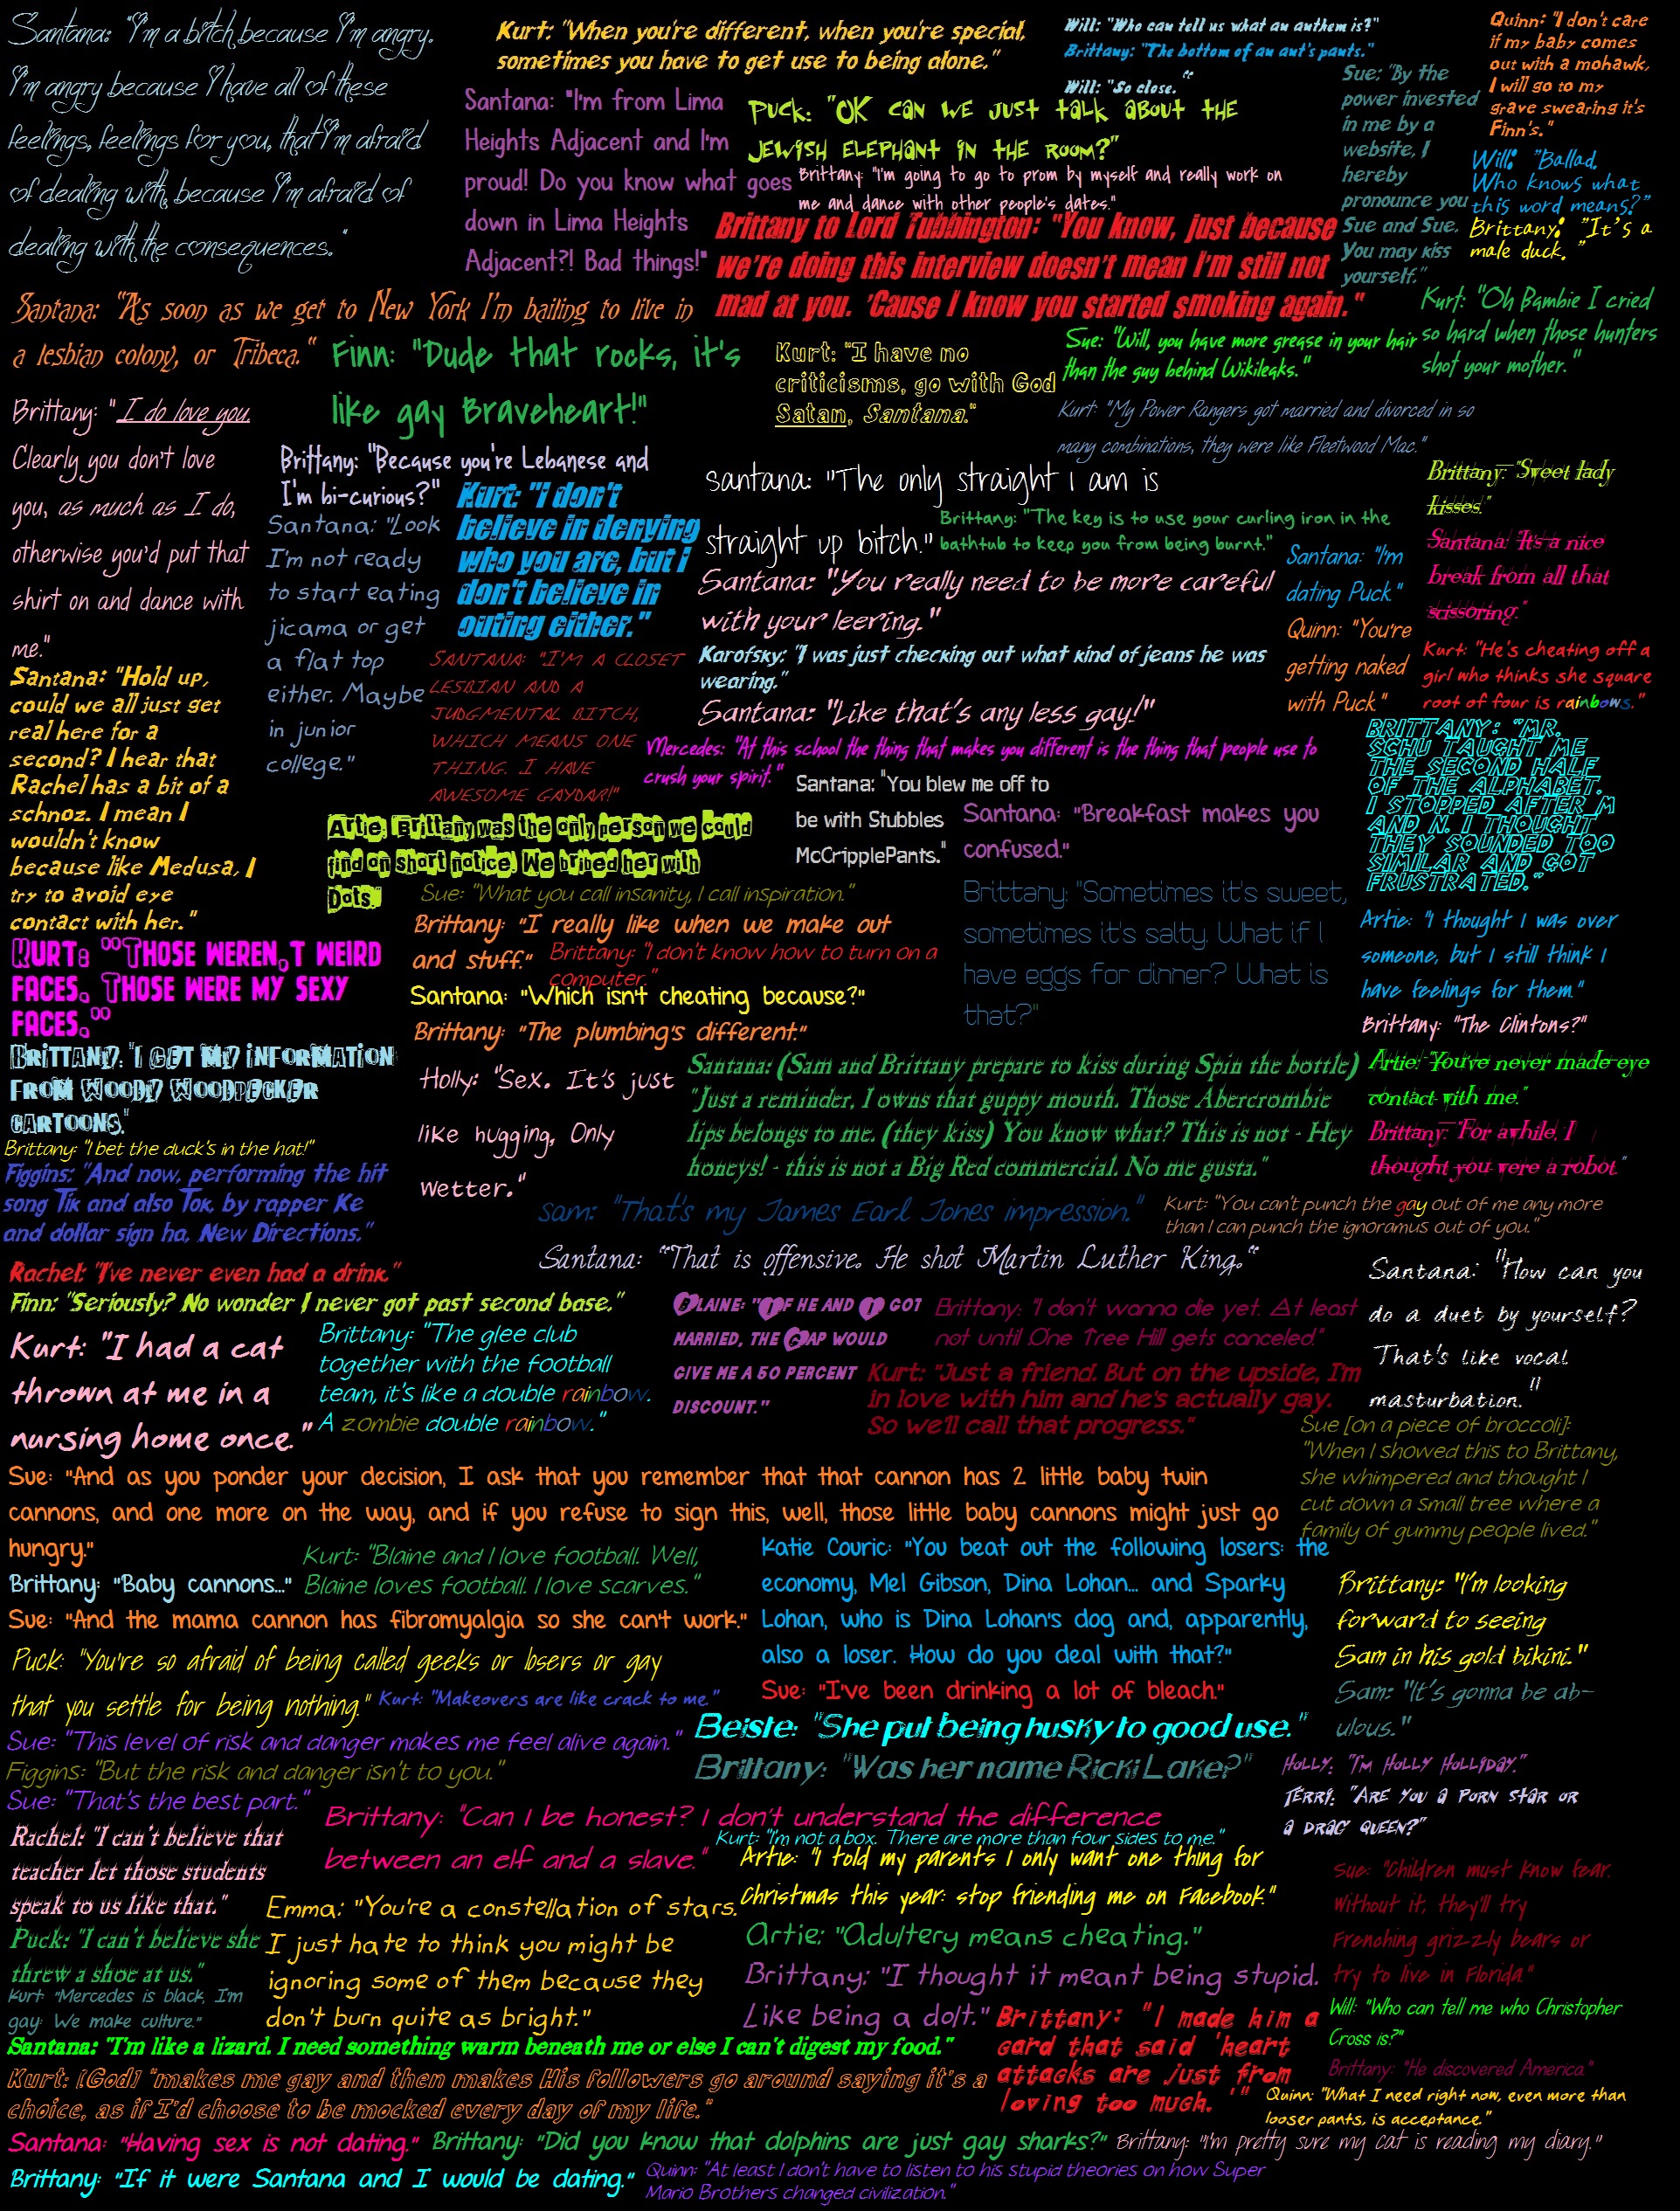 Santana: "I'm a bitch because I'm angry.
I'm angry because I have all of these
feelings, feelings for you, that I'm afraid
of dealing with, because I'm afraid of
dealing with the consequences."
Kurt: "When you're different, when you're special,
sometimes you have to get use to being alone."
Will: "Who can tell us what an anthem is?"
Brittany: "The bottom of an ant's pants."
Will: "So close."
Quinn: "I don't care
if my baby comes
out with a mohawk,
I will go to my
grave swearing it's
Finn's."
Santana: "I'm from Lima
Heights Adjacent and I'm
proud! Do you know what goes
down in Lima Heights
Adjacent?! Bad things!"
Puck: "OK can we just talk about the
Jewish elephant in the room?"
Sue: "By the
power invested
in me by a
website, I
hereby
pronounce you
Sue and Sue.
You may kiss
yourself."
Will: "Ballad.
Who knows what
this word means?"
Brittany: "It's a
male duck."
Brittany: "I'm going to go to prom by myself and really work on
me and dance with other people's dates."
Brittany to Lord Tubbington: "You know, just because
we're doing this interview doesn't mean I'm still not
mad at you. 'Cause I know you started smoking again."
Santana: "As soon as we get to New York I'm bailing to live in
a lesbian colony, or Tribeca."
Finn: "Dude that rocks, it's
like gay Braveheart!"
Kurt: "I have no
criticisms, go with God
Satan, Santana."
Sue: "Will, you have more grease in your hair
than the guy behind Wikileaks."
Kurt: "Oh Bambie I cried
so hard when those hunters
shot your mother."
Kurt: "My Power Rangers got married and divorced in so
many combinations, they were like Fleetwood Mac."
Brittany: "I do love you.
Clearly you don't love
you, as much as I do,
otherwise you'd put that
shirt on and dance with
me."
Brittany: "Because you're Lebanese and
I'm bi-curious?"
Santana: "Look
I'm not ready
to start eating
jicama or get
a flat top
either. Maybe
in junior
college."
Kurt: "I don't
believe in denying
who you are, but i
don't believe in
outing either."
Santana: "The only straight i am is
straight up bitch."
Brittany: "The key is to use your curling iron in the
bathtub to keep you from being burnt."
Brittany: "Sweet lady
kisses."
Santana: "It's a nice
break from all that
scissoring."
Santana: "I'm
dating Puck."
Quinn: "You're
getting naked
with Puck."
Santana: "You really need to be more careful
with your leering."
Karofsky: "I was just checking out what kind of jeans he was
wearing."
Santana: "Like that's any less gay!"
Kurt: "He's cheating off a
girl who thinks she square
root of four is rainbows."
Santana: "Hold up,
could we all just get
real here for a
second? I hear that
Rachel has a bit of a
schnoz. I mean I
wouldn't know
because like Medusa, I
try to avoid eye
contact with her."
Santana: "I'm a closet
lesbian and a
judgmental bitch,
which means one
thing. I have
awesome gaydar!"
Mercedes: "At this school the thing that makes you different is the thing that people use to
crush your spirit."
Brittany: "Mr.
Schu taught me
the second half
of the alphabet.
I stopped after M
and N. I thought
they sounded too
similar and got
frustrated."
Santana: "You blew me off to
be with Stubbles
McCripplePants."
Santana: "Breakfast makes you
confused."
Brittany: "Sometimes it's sweet,
sometimes it's salty. What if I
have eggs for dinner? What is
that?"
Artie: Brittany was the only person we could
find on short notice. We bribed her with
Dots."
Sue: "What you call insanity, I call inspiration."
Brittany: "I really like when we make out
and stuff."
Brittany: "I don't know how to turn on a
computer."
Santana: "Which isn't cheating because?"
Brittany: "The plumbing's different."
Artie: "I thought I was over
someone, but I still think I
have feelings for them."
Brittany: "The Clintons?"
Kurt: "Those weren,t weird
faces. Those were my sexy
faces."
Brittany: "I get my information
from Woody Woodpecker
cartoons."
Brittany: "I bet the duck's in the hat!"
Figgins: "And now, performing the hit
song Tik and also Tok, by rapper Ke
and dollar sign ha, New Directions."
Holly: "Sex. It's just
like hugging, Only
wetter."
Santana: (Sam and Brittany prepare to kiss during Spin the bottle)
"Just a reminder, I owns that guppy mouth. Those Abercrombie
lips belongs to me. (they kiss) You know what? This is not - Hey
honeys! - this is not a Big Red commercial. No me gusta."
Artie: "You've never made eye
contact with me."
Brittany: "For awhile, I
thought you were a robot."
Sam: "That's my James Earl Jones impression."
Santana: "That is offensive. He shot Martin Luther King."
Kurt: "You can't punch the gay out of me any more
than I can punch the ignoramus out of you."
Rachel: "I've never even had a drink."
Finn: "Seriously? No wonder I never got past second base."
Kurt: "I had a cat
thrown at me in a
nursing home once."
Brittany: "The glee club
together with the football
team, it's like a double rainbow.
A zombie double rainbow."
Blaine: "If he and I got
married, the Gap would
give me a 50 percent
discount."
Brittany: "I don't wanna die yet. At least
not until One Tree Hill gets canceled."
Kurt: "Just a friend. But on the upside, I'm
in love with him and he's actually gay.
So we'll call that progress."
Santana: "How can you
do a duet by yourself?
That's like vocal
masturbation."
Sue [on a piece of broccoli]:
"When I showed this to Brittany,
she whimpered and thought I
cut down a small tree where a
family of gummy people lived."
Sue: "And as you ponder your decision, I ask that you remember that that cannon has 2 little baby twin
cannons, and one more on the way, and if you refuse to sign this, well, those little baby cannons might just go
hungry."
Brittany: "Baby cannons..."
Sue: "And the mama cannon has fibromyalgia so she can't work."
Kurt: "Blaine and I love football. Well,
Blaine loves football. I love scarves."
Katie Couric: "You beat out the following losers: the
economy, Mel Gibson, Dina Lohan... and Sparky
Lohan, who is Dina Lohan's dog and, apparently,
also a loser. How do you deal with that?"
Sue: "I've been drinking a lot of bleach."
Brittany: "I'm looking
forward to seeing
Sam in his gold bikini."
Sam: "It's gonna be ab-
ulous."
Puck: "You're so afraid of being called geeks or losers or gay
that you settle for being nothing."
Kurt: "Makeovers are like crack to me."
Sue: "This level of risk and danger makes me feel alive again."
Figgins: "But the risk and danger isn't to you."
Sue: "That's the best part."
Beiste: "She put being husky to good use."
Brittany: "Was her name Ricki Lake?"
Holly: "I'm Holly Holliday."
Terri: "Are you a porn star or
a drag queen?"
Rachel: "I can't believe that
teacher let those students
speak to us like that."
Puck: "I can't believe she
threw a shoe at us."
Brittany: "Can I be honest? I don't understand the difference
between an elf and a slave."
Kurt: "I'm not a box. There are more than four sides to me."
Artie: "I told my parents I only want one thing for
Christmas this year: stop friending me on Facebook."
Sue: "Children must know fear.
Without it, they'll try
Frenching grizzly bears or
try to live in Florida."
Emma: "You're a constellation of stars.
I just hate to think you might be
ignoring some of them because they
don't burn quite as bright."
Artie: "Adultery means cheating."
Brittany: "I thought it meant being stupid.
Like being a dolt."
Kurt: "Mercedes is black, I'm
gay: We make culture."
Brittany: "I made him a
card that said 'heart
attacks are just from
loving too much.'"
Will: "Who can tell me who Christopher
Cross is?"
Brittany: "He discovered America."
Santana: "I'm like a lizard. I need something warm beneath me or else I can't digest my food."
Kurt: [God] "makes me gay and then makes His followers go around saying it's a
choice, as if I'd choose to be mocked every day of my life."
Quinn: "What I need right now, even more than
looser pants, is acceptance."
Santana: "Having sex is not dating."
Brittany: "If it were Santana and I would be dating."
Brittany: "Did you know that dolphins are just gay sharks?"
Brittany: "I'm pretty sure my cat is reading my diary."
Quinn: "At least I don't have to listen to his stupid theories on how Super
Mario Brothers changed civilization."